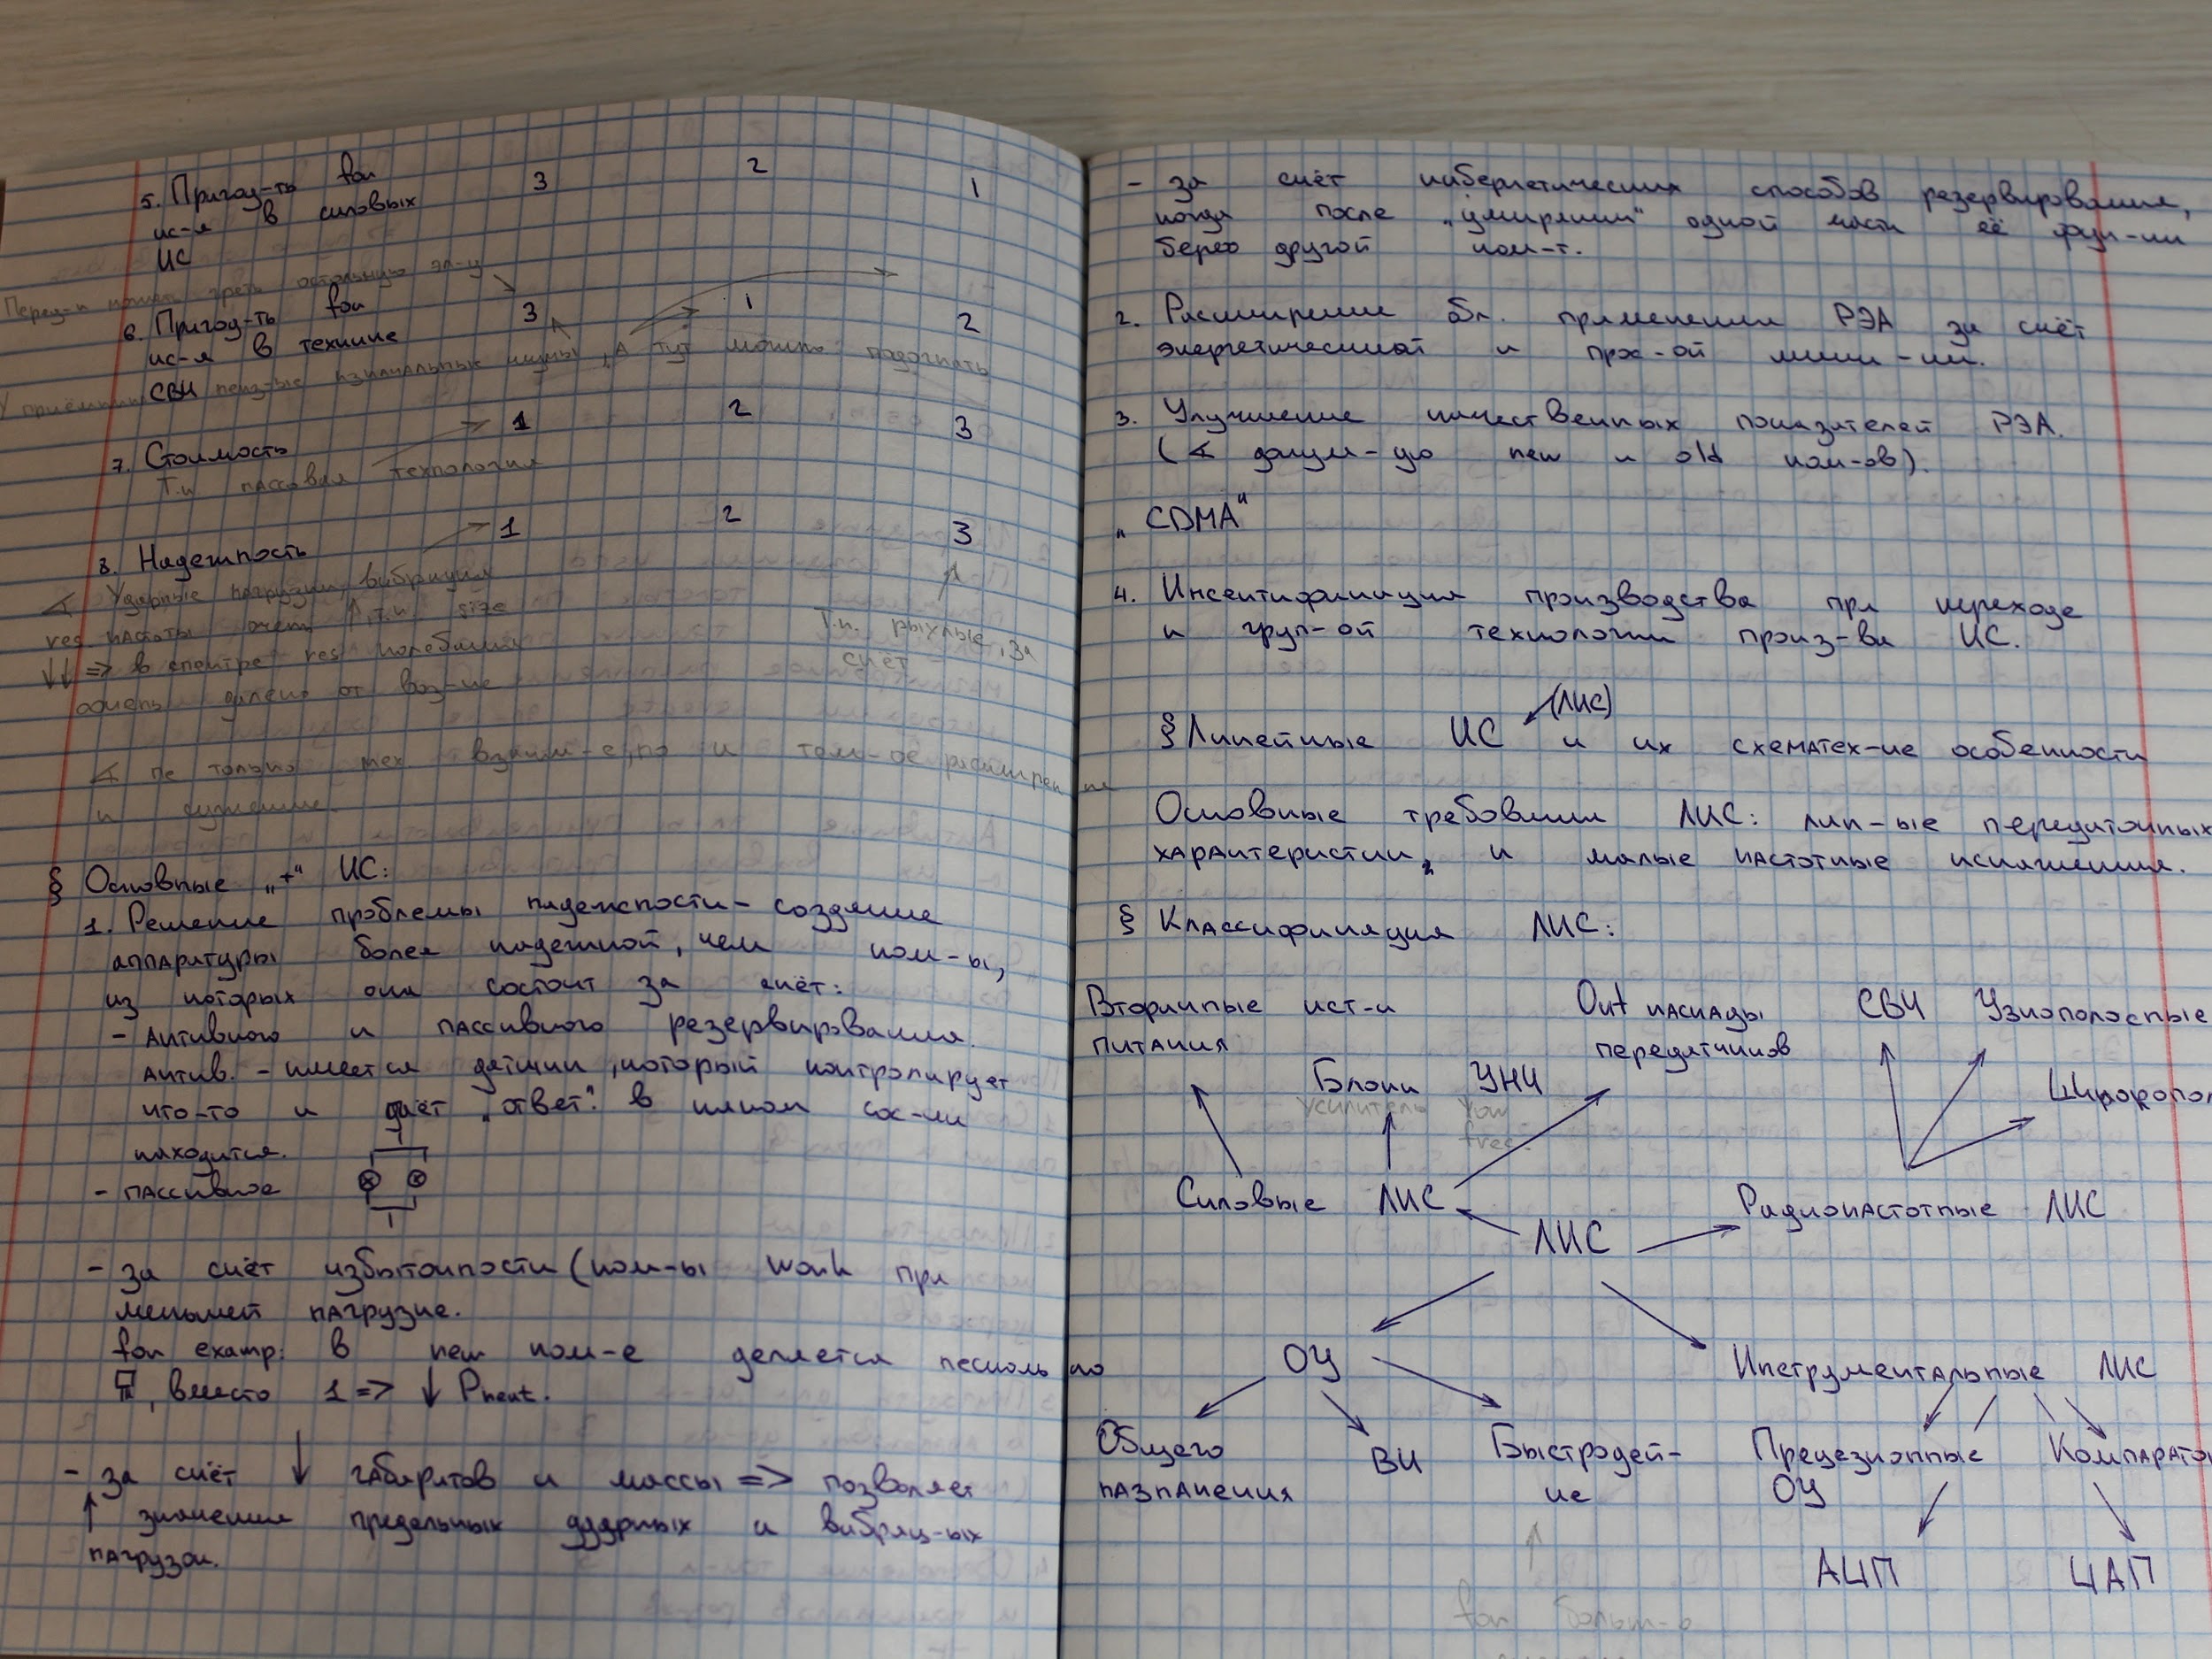 5. Пригод-ть for 3 2 1
ис-я в силовых
ИС
Перед-к может греть остальную эл-у
6. Пригод-ть for 3 1 2
ис-я в технике
СВЧ
У приёмника изначальные шумы, А тут можно подогнать
7. Стоимость 1 2 3
Т.к массовая технология
8. Надежность 1 2 3
∢ Ударные нагрузки, вибрация
res частоты очень ↑, т.к size
↓↓ => в спектре res колебания
очень далеко от воз-ие
Т.к. рыхлые, за
счёт
∢ не только мех взаим-е, но и тем-ое расширение
и сужение.
§ Основные „+“ ИС:
1. Решение проблемы надежности – создание
аппаратуры более надежной, чем ком-ы,
из которых она состоит за счёт:
- Активного и пассивного резервирования.
Актив. - имеется датчик, который контролирует
что-то и даёт „ответ“: в каком сос-ии
находится.
- пассивное
- за счёт избыточности (ком-ы work при
меньшей нагрузке.
for examp: в new ком-е делается несколько
, вместо 1 => ↓ Pheat.
- за счёт ↓ габаритов и массы => позволяет
↑ значение предельных ударных и вибрац-ых
нагрузок.
- за счёт кибернетических способов резервирования,
когда после „умирания“ одной части её фун-ии
берёт другой ком-т.
2. Расширение обл. применения РЭА за счёт
энергетической и прос-ой мини-ии.
3. Улучшение качественных показателей РЭА.
(∢ new и old ком-ов).
„CDMA“
4. Инсентификация производства при переходе
к груп-ой технологии произ-ва ИС.
(ЛИС)
§ Линейные ИС и их схематех-ие особенности
Основные требования ЛИС: лин-ые передаточных
характеристик, и малые частотные искажения.
§ Классификация ЛИС:
Вторичные ист-и Out каскады СВЧ Узкополосные
питания передатчиков
Блоки УНЧ Широкопол
Усилитель low
freq.
Силовые ЛИС Радиочастотные ЛИС
ЛИС
ОУ Инструментальные ЛИС
Общего ВЧ Быстродей- Прецезионные Компарато
назначения ие ОУ
АЦП ЦАП
for больш-о